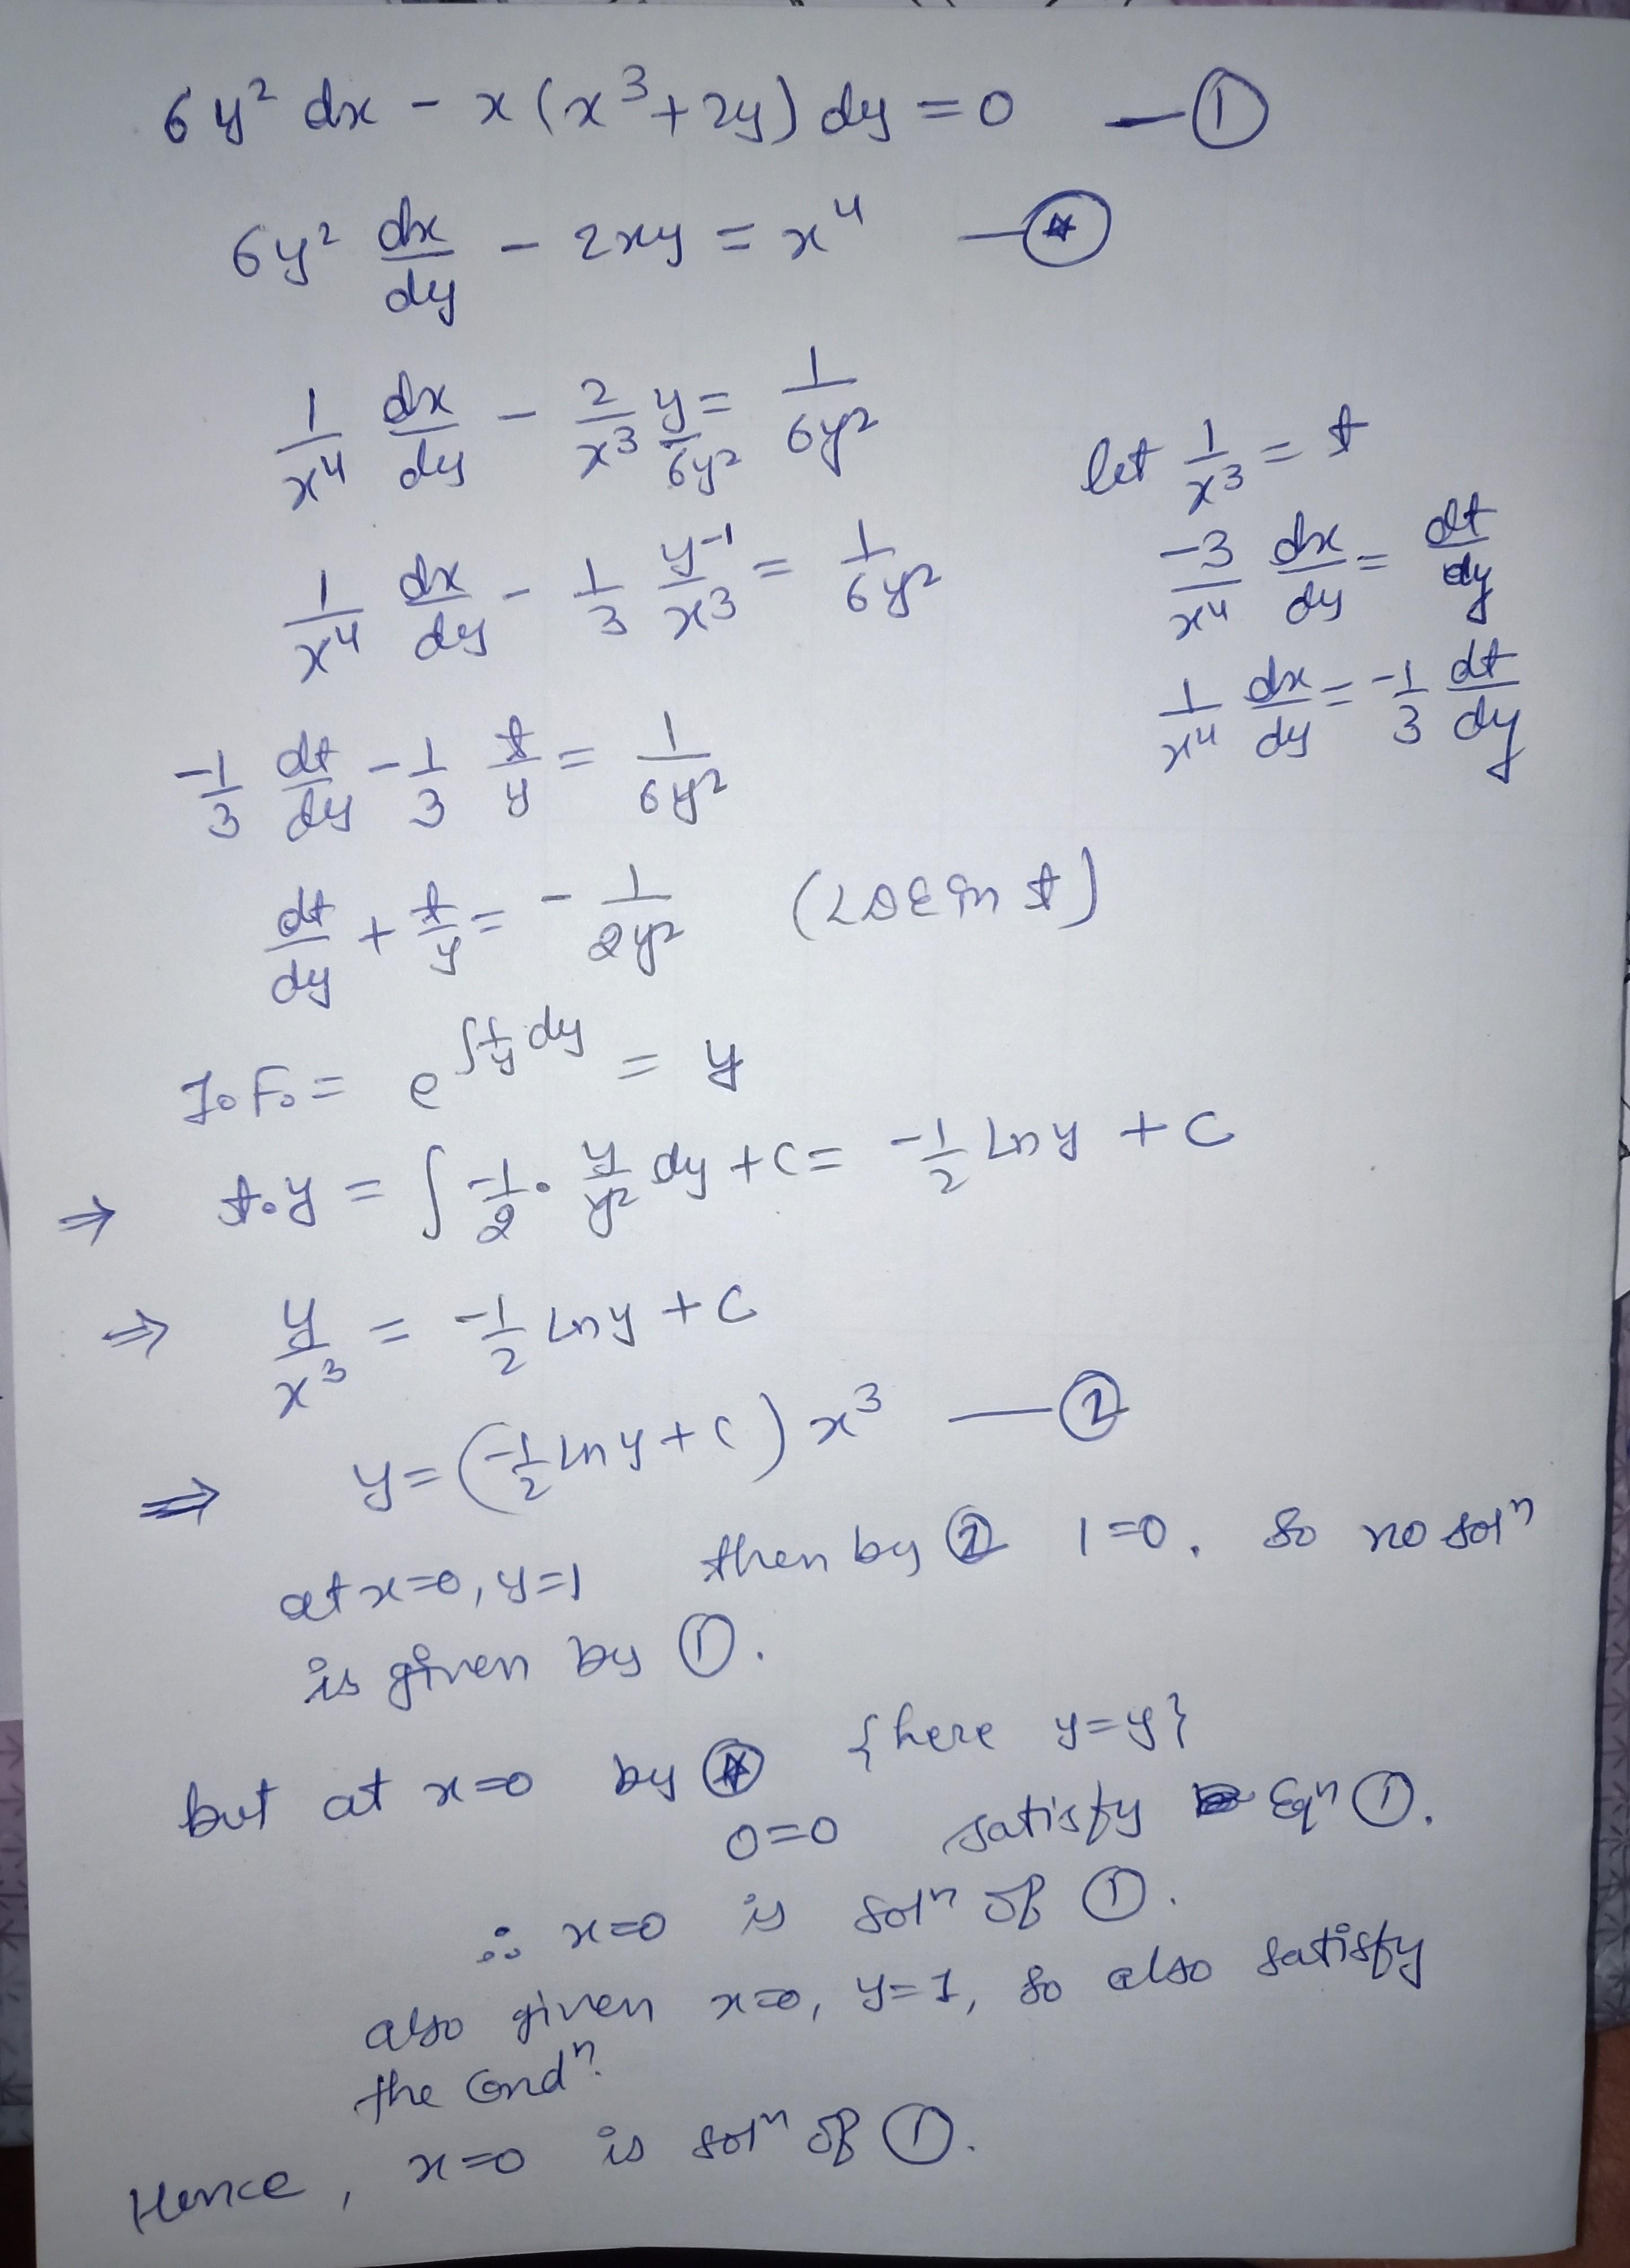 6y² dx - x(x³+2y) dy = 0 — ①
6y² dx/dy - 2xy = x⁴ — ⊛
1/x⁴ dx/dy - 2/x³ y/6y² = 1/6y²
let 1/x³ = t
1/x⁴ dx/dy - 1/3 y⁻¹/x³ = 1/6y²
-3/x⁴ dx/dy = dt/dy
1/x⁴ dx/dy = -1/3 dt/dy
-1/3 dt/dy - 1/3 t/y = 1/6y²
dt/dy + t/y = - 1/2y² (LDE in t)
I.F. = e^∫1/y dy = y
⇒ t.y = ∫ -1/2 . y/y² dy + C = -1/2 Ln y + C
⇒ y/x³ = -1/2 Ln y + C
⇒ y = (-1/2 Ln y + C) x³ — ②
at x=0, y=1 then by ② 1=0. So no solⁿ
is given by ①.
but at x=0 by ⊛ {here y=y}
0=0 satisfy Eqⁿ ①.
∴ x=0 is solⁿ of ①.
also given x=0, y=1, so also satisfy
the condⁿ.
Hence, x=0 is solⁿ of ①.